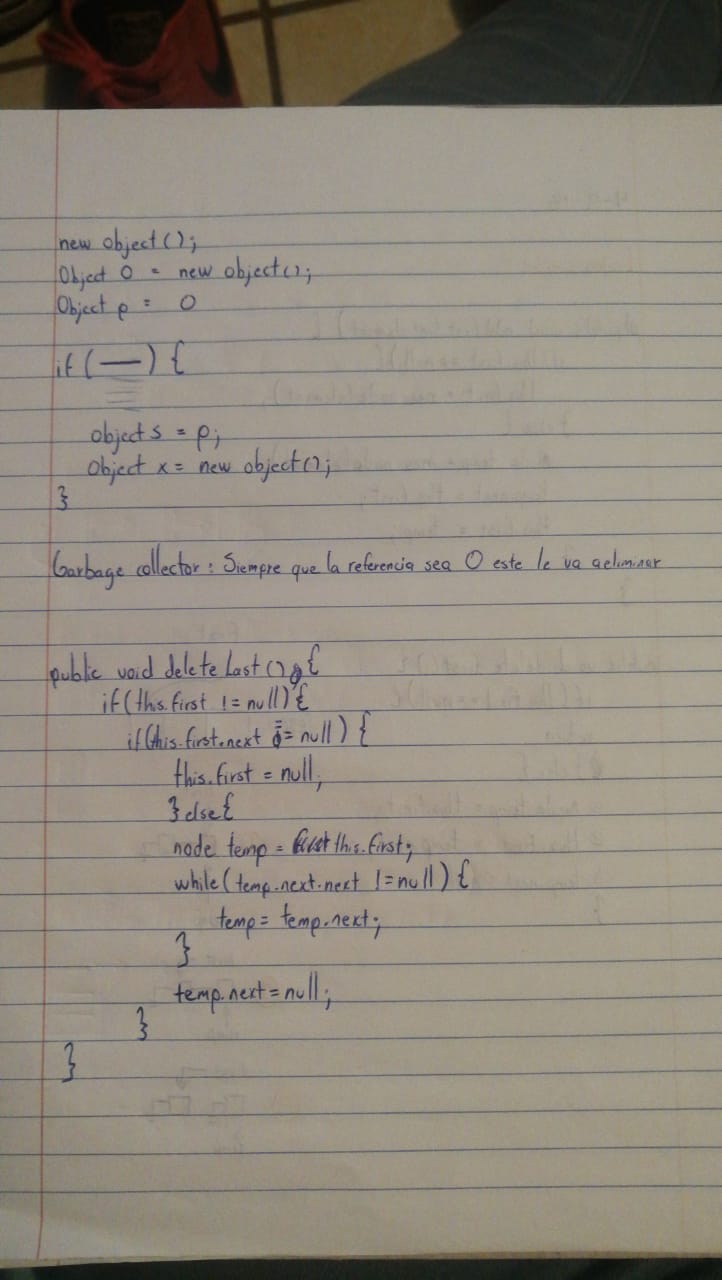 new object();
Object O = new object();
Object p = O
if (—) {
object s = p;
Object x = new object();
}
Garbage collector: Siempre que la referencia sea O este le va aeliminar
public void delete Last() {
if (this.first != null) {
if (this.first.next == null) {
this.first = null;
} else {
node temp = this.first;
while (temp.next.next != null) {
temp = temp.next;
}
temp.next = null;
}
}